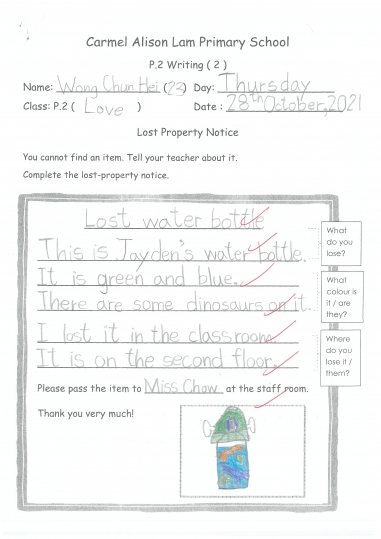 Carmel Alison Lam Primary School
P.2 Writing ( 2 )
Name: Wong Chun Hei (23) Day: Thursday
Class: P.2 ( Love ) Date : 28th October, 2021
Lost Property Notice
You cannot find an item. Tell your teacher about it.
Complete the lost-property notice.
Lost water bottle
This is Jayden's water bottle.
What do you lose?
It is green and blue.
There are some dinosaurs on it.
What colour is it / are they?
I lost it in the classroom.
It is on the second floor.
Where do you lose it / them?
Please pass the item to Miss Chaw at the staff room.
Thank you very much!